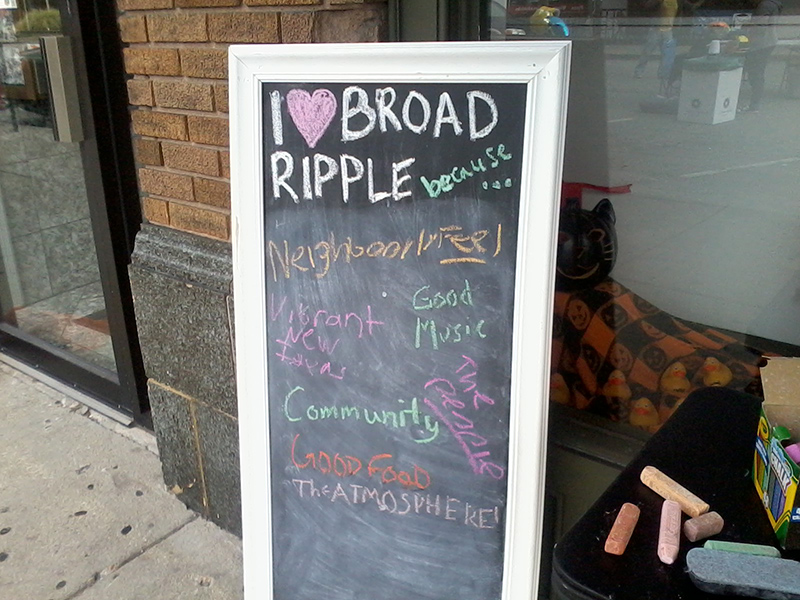 I ♥ BROAD
RIPPLE because...
Neighboorly Feel
Good
Music
Vibrant
New
Ideas
The
People
Community
GOOD FOOD
The ATMOSPHERE!